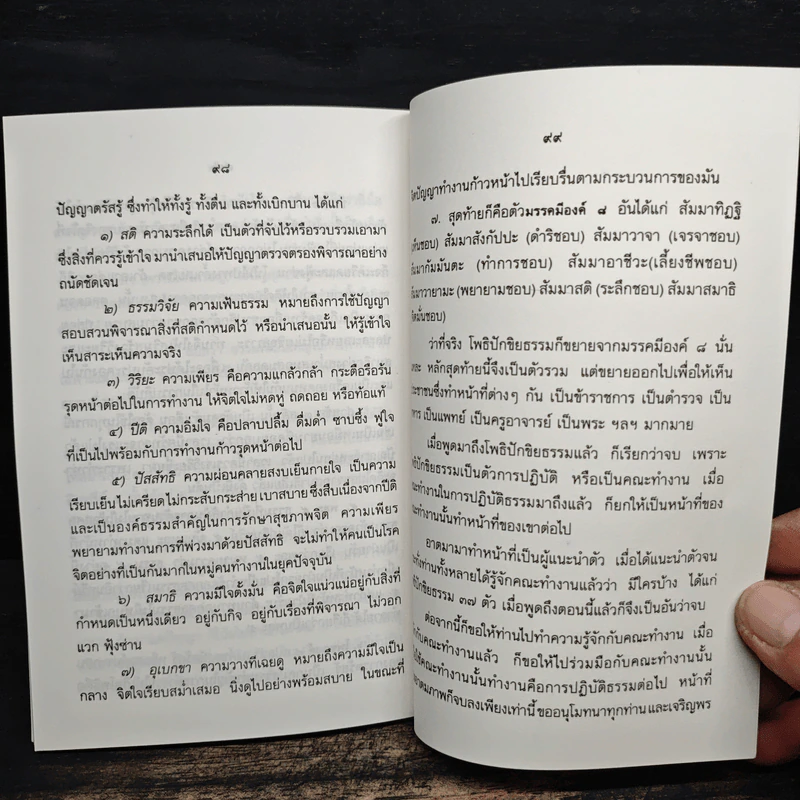 ๙๘
ปัญญาตรัสรู้ ซึ่งทำให้ทั้งรู้ ทั้งตื่น และทั้งเบิกบาน ได้แก่
๑) สติ ความระลึกได้ เป็นตัวที่จับไว้หรือรวบรวมเอามา
ซึ่งสิ่งที่ควรรู้เข้าใจ มานำเสนอให้ปัญญาตรวจตรองพิจารณาอย่าง
ถนัดชัดเจน
๒) ธรรมวิจัย ความเฟ้นธรรม หมายถึงการใช้ปัญญา
สอบสวนพิจารณาสิ่งที่สติกำหนดไว้ หรือนำเสนอนั้น ให้รู้เข้าใจ
เห็นสาระเห็นความจริง
๓) วิริยะ ความเพียร คือความแกล้วกล้า กระตือรือร้น
รุดหน้าต่อไปในการทำงาน ให้จิตใจไม่หดหู่ ถดถอย หรือท้อแท้
๔) ปีติ ความอิ่มใจ คือปลาบปลื้ม ดื่มด่ำ ซาบซึ้ง ฟูใจ
ที่เป็นไปพร้อมกับการทำงานก้าวรุดหน้าต่อไป
๕) ปัสสัทธิ ความผ่อนคลายสงบเย็นกายใจ เป็นความ
เรียบเย็นไม่เครียด ไม่กระสับกระส่าย เบาสบาย ซึ่งสืบเนื่องจากปีติ
และเป็นองค์ธรรมสำคัญในการรักษาสุขภาพจิต ความเพียร
พยายามทำงานการที่พ่วงมาด้วยปัสสัทธิ จะไม่ทำให้คนเป็นโรค
จิตอย่างที่เป็นกันมากในหมู่คนทำงานในยุคปัจจุบัน
๖) สมาธิ ความมีใจตั้งมั่น คือจิตใจแน่วแน่อยู่กับสิ่งที่
กำหนดเป็นหนึ่งเดียว อยู่กับกิจ อยู่กับเรื่องที่พิจารณา ไม่วอก
แวก ฟุ้งซ่าน
๗) อุเบกขา ความวางทีเฉยดู หมายถึงความมีใจเป็น
กลาง จิตใจเรียบสม่ำเสมอ นิ่งดูไปอย่างพร้อมสบาย ในขณะที่
๙๙
ปัญญาทำงานก้าวหน้าไปเรียบรื่นตามกระบวนการของมัน
๗. สุดท้ายก็คือตัวมรรคมีองค์ ๘ อันได้แก่ สัมมาทิฏฐิ
สัมมาสังกัปปะ (ดำริชอบ) สัมมาวาจา (เจรจาชอบ)
สัมมากัมมันตะ (ทำการชอบ) สัมมาอาชีวะ(เลี้ยงชีพชอบ)
สัมมาวายามะ (พยายามชอบ) สัมมาสติ (ระลึกชอบ) สัมมาสมาธิ
มั่นชอบ)
ว่าที่จริง โพธิปักขิยธรรมก็ขยายจากมรรคมีองค์ ๘ นั่น
หลักสุดท้ายนี้จึงเป็นตัวรวม แต่ขยายออกไปเพื่อให้เห็น
ประชาชนซึ่งทำหน้าที่ต่างๆ กัน เป็นข้าราชการ เป็นตำรวจ เป็น
ทหาร เป็นแพทย์ เป็นครูอาจารย์ เป็นพระ ฯลฯ มากมาย
เมื่อพูดมาถึงโพธิปักขิยธรรมแล้ว ก็เรียกว่าจบ เพราะ
โพธิปักขิยธรรมเป็นตัวการปฏิบัติ หรือเป็นคณะทำงาน เมื่อ
คณะทำงานในการปฏิบัติธรรมมาถึงแล้ว ก็ยกให้เป็นหน้าที่ของ
คณะทำงานนั้นทำหน้าที่ของเขาต่อไป
อาตมามาทำหน้าที่เป็นผู้แนะนำตัว เมื่อได้แนะนำตัวจน
กระทั่งท่านทั้งหลายได้รู้จักคณะทำงานแล้วว่า มีใครบ้าง ได้แก่
โพธิปักขิยธรรม ๓๗ ตัว เมื่อพูดถึงตอนนี้แล้วก็จึงเป็นอันว่าจบ
ต่อจากนี้ก็ขอให้ท่านไปทำความรู้จักกับคณะทำงาน เมื่อ
กับคณะทำงานแล้ว ก็ขอให้ไปร่วมมือกับคณะทำงานนั้น
ใช้คณะทำงานนั้นทำงานคือการปฏิบัติธรรมต่อไป หน้าที่
อาตมภาพก็จบลงเพียงเท่านี้ ขออนุโมทนาทุกท่าน และเจริญพร